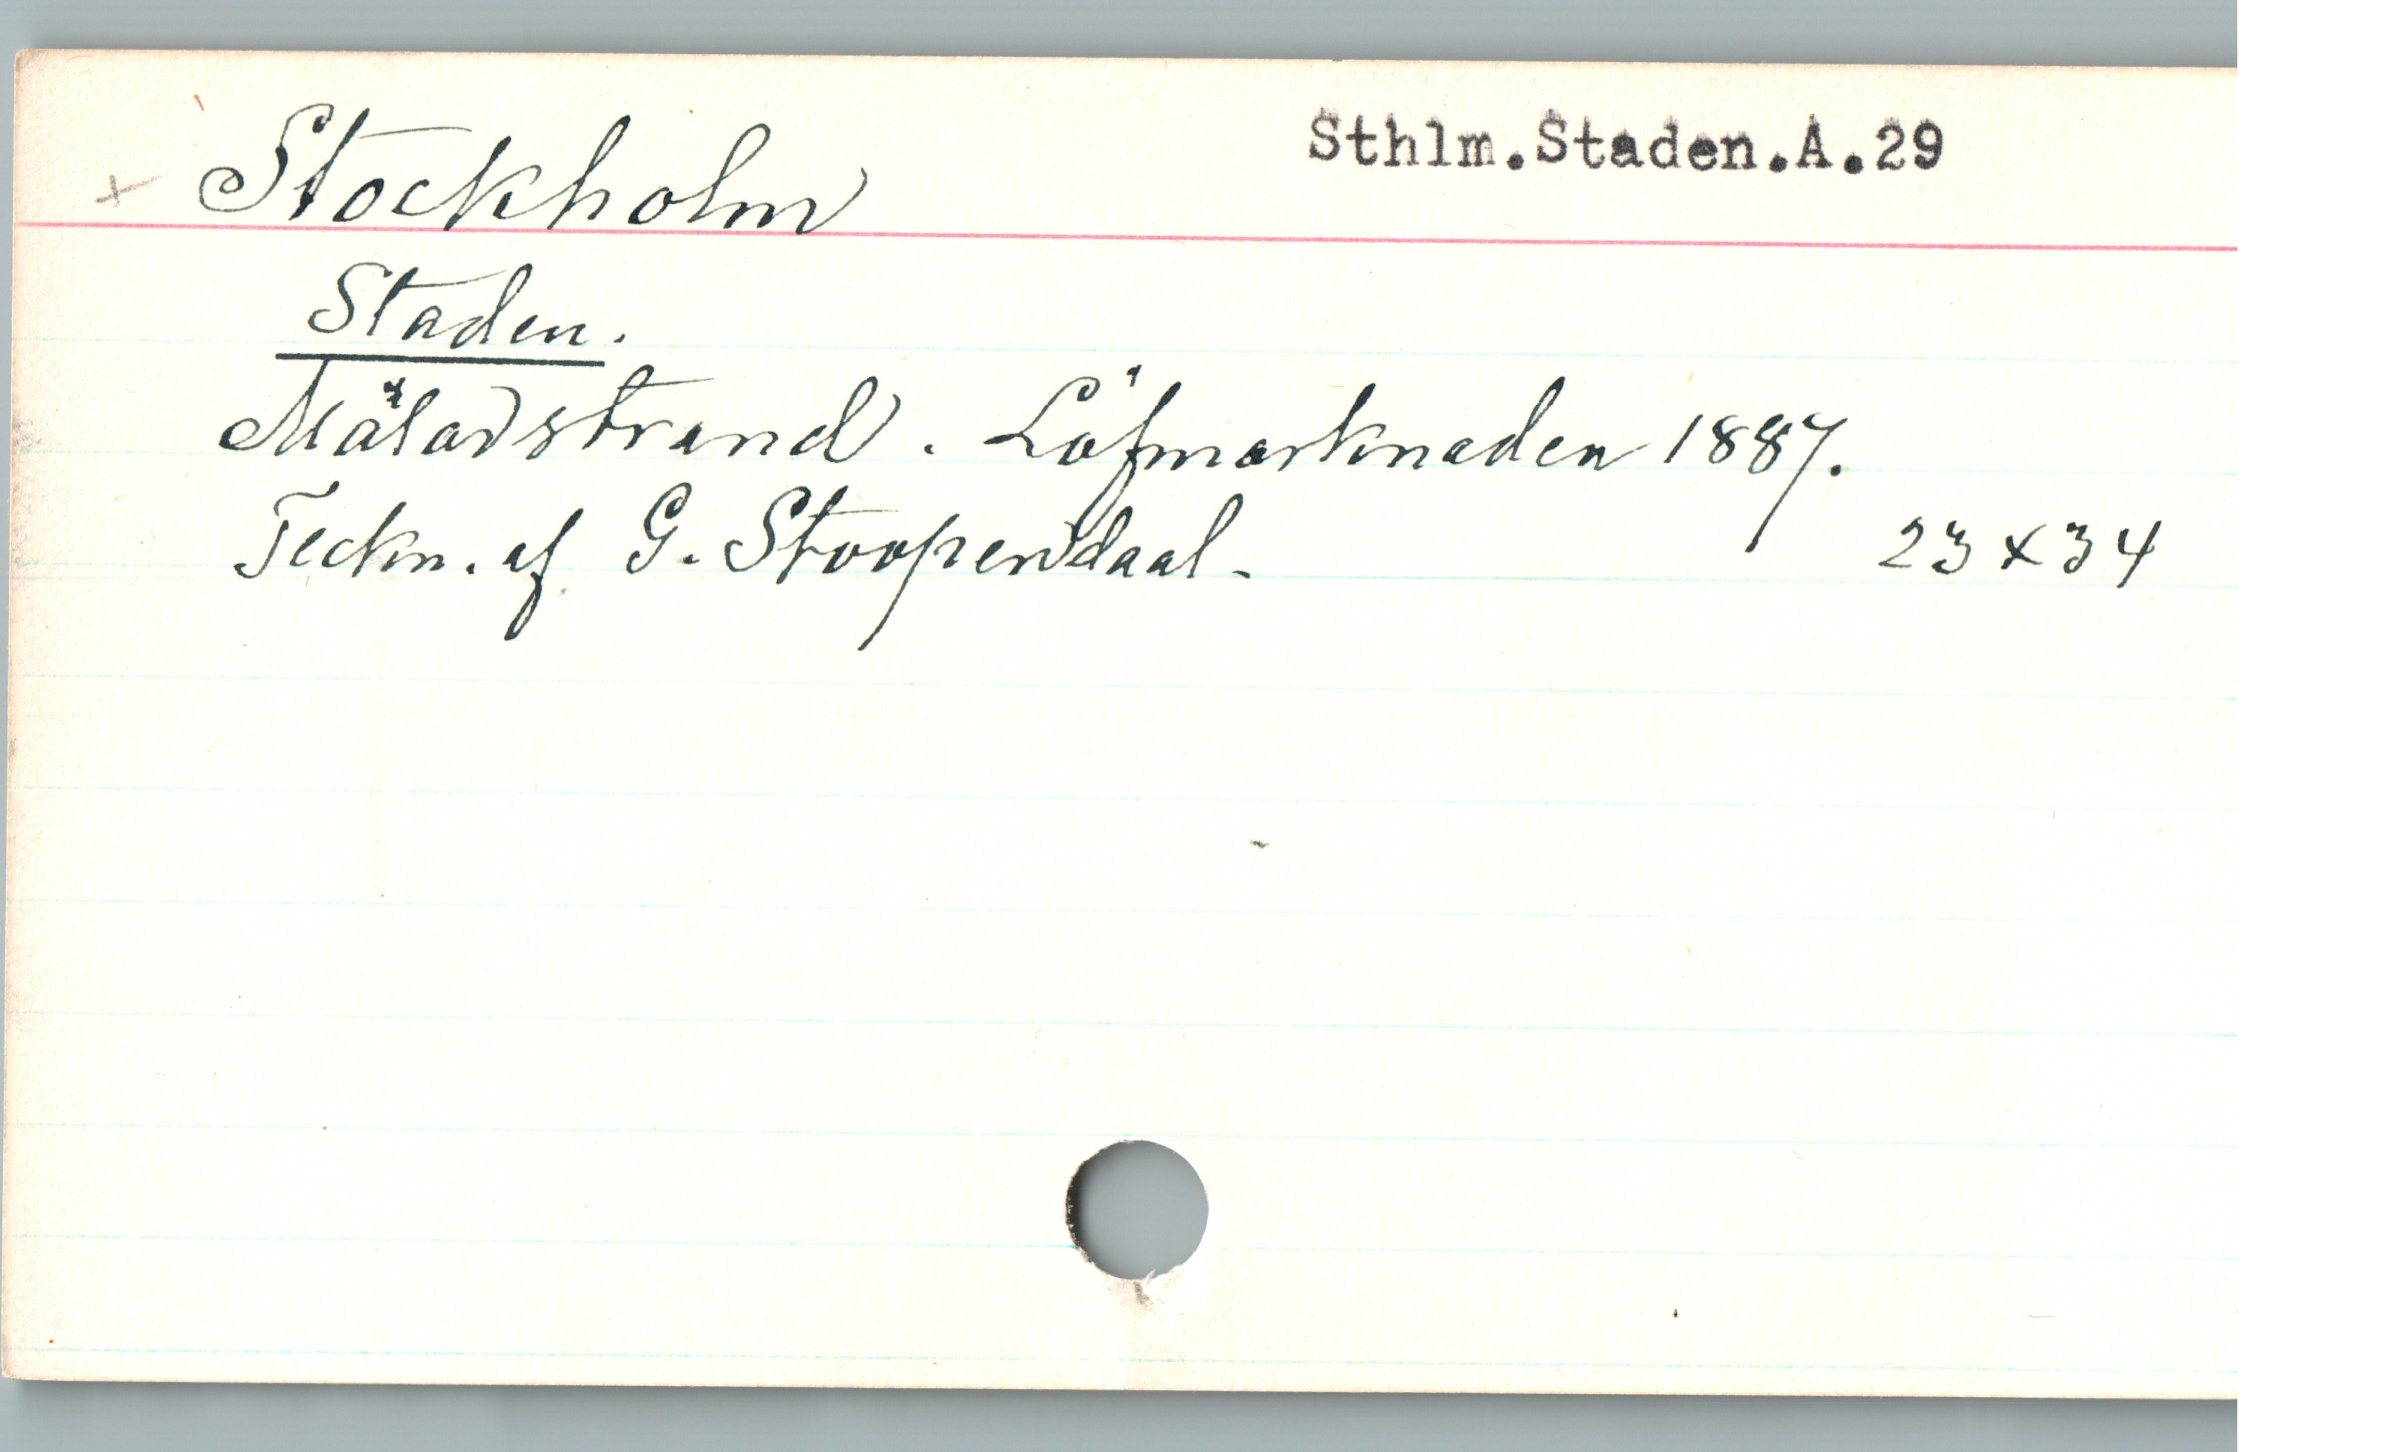 Sthlm.Staden.A.29
+ Stockholm
Staden.
Mälarstrand. Löfmarknaden 1887.
Teckn. af G. Stoopendaal.
23 x 34